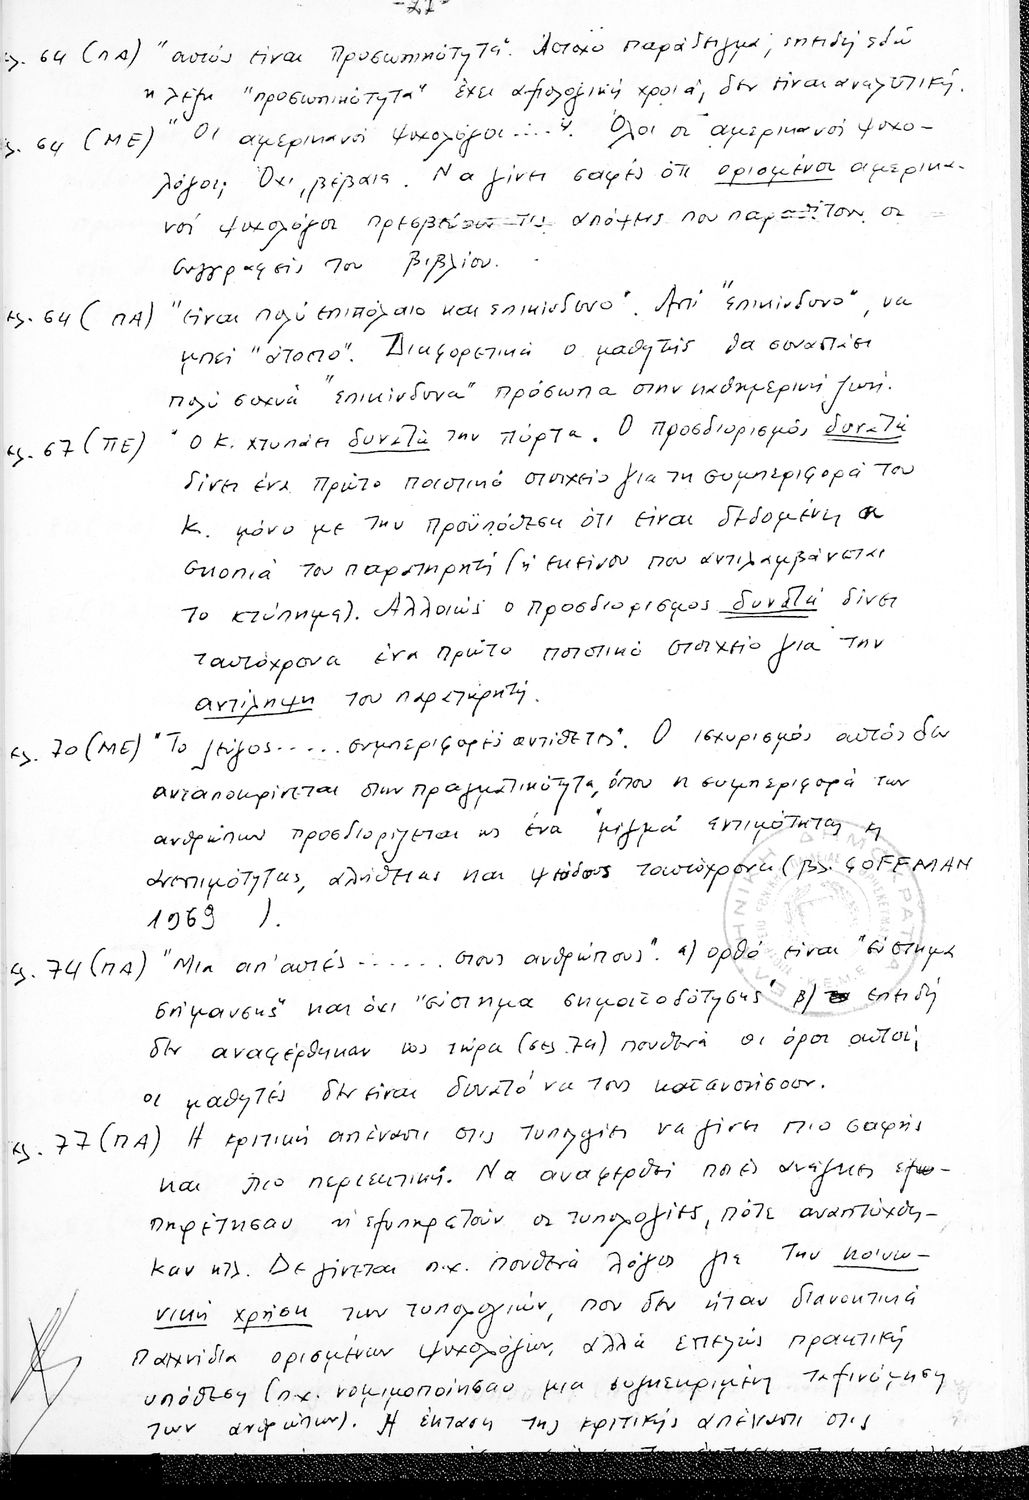 -27-
σελ. 64 (ΠΑ) "αυτός είναι προσωπικότητα". Άστοχο παράδειγμα, επειδή εδώ
η λέξη "προσωπικότητα" έχει αξιολογική χροιά, δεν είναι αναλυτική.
σελ. 64 (ΜΕ) "Οι αμερικανοί ψυχολόγοι....". Όλοι οι αμερικανοί ψυχο-
λόγοι; Όχι, βέβαια. Να γίνει σαφές ότι ορισμένοι αμερικα-
νοί ψυχολόγοι πρεσβεύουν τις απόψεις που παραθέτουν οι
συγγραφείς του βιβλίου.
σελ. 64 (ΠΑ) "είναι πολύ επιπόλαιο και επικίνδυνο". Αντί "επικίνδυνο", να
μπει "άτοπο". Διαφορετικά ο μαθητής θα συναντάει
πολύ συχνά "επικίνδυνα" πρόσωπα στην καθημερινή ζωή.
σελ. 67 (ΠΕ) "Ο Κ. χτυπάει δυνατά την πόρτα. Ο προσδιορισμός δυνατά
δίνει ένα πρώτο ποιοτικό στοιχείο για τη συμπεριφορά του
Κ. μόνο με την προϋπόθεση ότι είναι δεδομένη η
σκοπιά του παρατηρητή (ή εκείνου που αντιλαμβάνεται
το κτύπημα). Αλλοιώς ο προσδιορισμος δυνατά δίνει
ταυτόχρονα ένα πρώτο ποιοτικό στοιχείο για την
αντίληψη του παρατηρητή.
σελ. 70 (ΜΕ) "Το ψεύδος..... συμπεριφορές αντίθετες". Ο ισχυρισμός αυτός δεν
ανταποκρίνεται στην πραγματικότητα, όπου η συμπεριφορά των
ανθρώπων προσδιορίζεται ως ένα "μίγμα" εντιμότητας ή
ανεντιμότητας, αλήθειας και ψεύδους ταυτόχρονα (βλ. GOFFMAN
1969 ).
σελ. 74 (ΠΑ) "Μια απ' αυτές ...... στους ανθρώπους". α) ορθό είναι "σύστημα
σήμανσης" και όχι "σύστημα σηματοδότησης" β) επειδή
δεν αναφέρθηκαν ως τώρα (σελ. 74) πουθενά οι όροι αυτοί,
οι μαθητές δεν είναι δυνατό να τους κατανοήσουν.
σελ. 77 (ΠΑ) Η κριτική απέναντι στις τυπολογίες να γίνει πιο σαφής
και πιο περιεκτική. Να αναφερθεί ποιές ανάγκες εξυ-
πηρέτησαν ή εξυπηρετούν οι τυπολογίες, πότε αναπτύχθη-
καν κτλ. Δε γίνεται π.χ. πουθενά λόγος για την κοινω-
νική χρήση των τυπολογιών, που δεν ήταν διανοητικά
παιχνίδια ορισμένων ψυχολόγων, αλλά επελώς πρακτική
υπόθεση (π.χ. νομιμοποίησαν μια συγκεκριμένη ταξινόμηση
των ανθρώπων). Η έκταση της κριτικής απέναντι στις